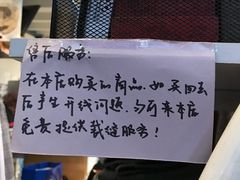 售后服务:
在本店购买的商品,如买回去
后产生开线问题,可来本店
免费提供裁缝服务!